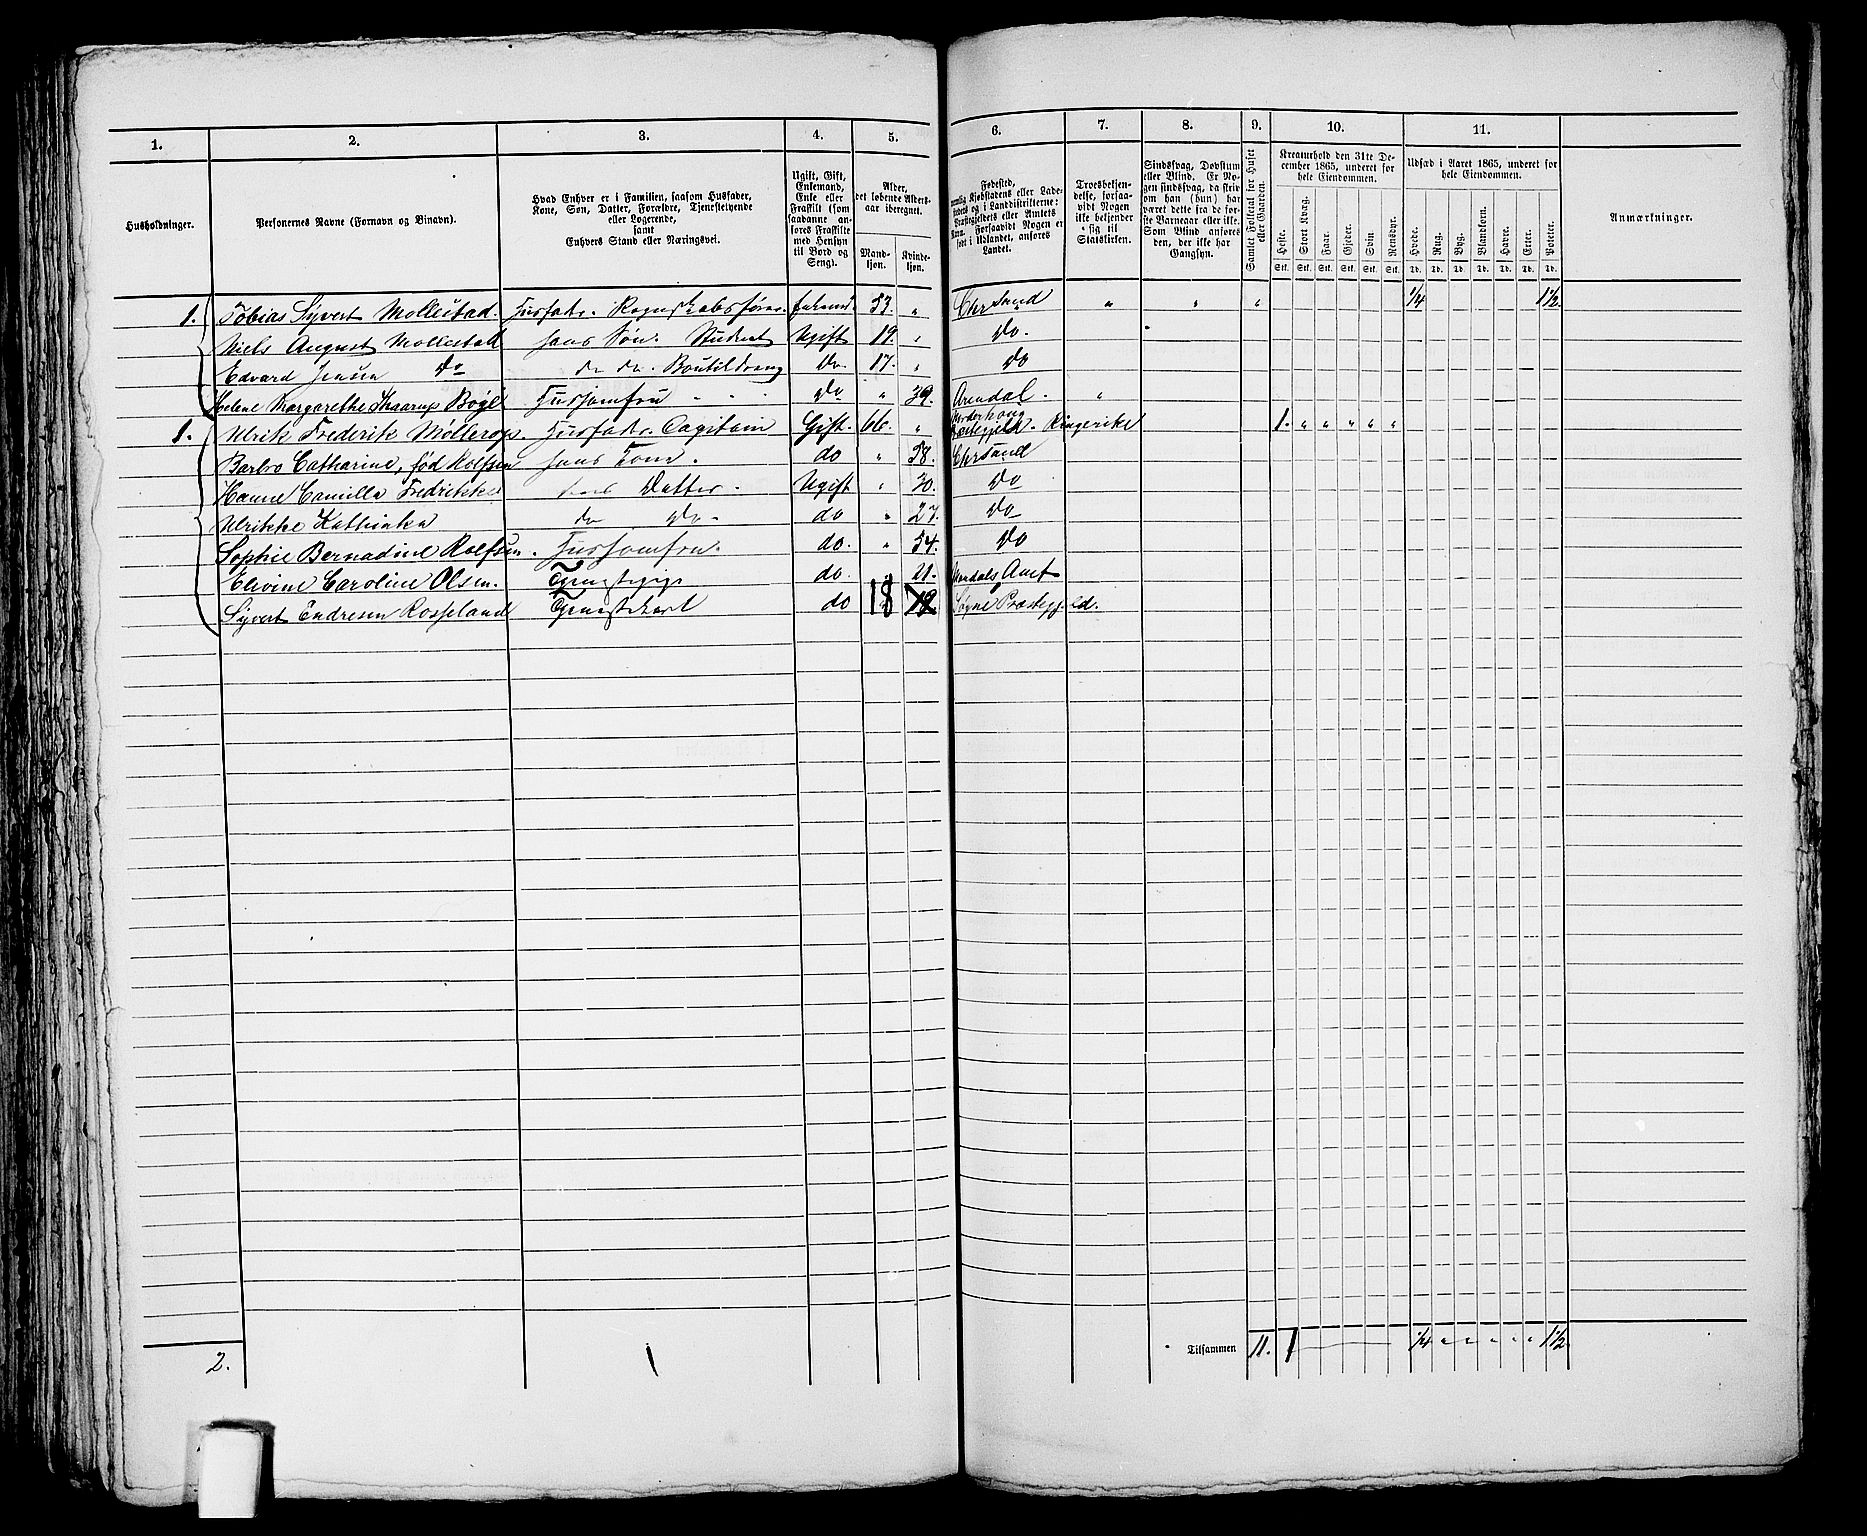 1. 2. 3. 4. 5. 6. 7. 8. 9. 10. 11.
Husholdninger.
Personernes Navne (Fornavn og Binavn).
Hvad Enhver er i Familien, saasom Husfader,
Kone, Søn, Datter, Forældre, Tjenstetyende
eller Logerende,
samt
Enhvers Stand eller Næringsvei.
Ugift, Gift,
Enkemand,
Enke eller
Fraskilt (som
saadanne an-
føres Fraskilte
med Hensyn
til Bord og
Seng).
Alder,
det løbende Alders-
aar iberegnet.
Mand-
kjøn.
Kvinde-
kjøn.
Fødested,
nemlig Kjøbstadens eller Lade-
stedets og i Landdistrikterne:
Præstegjeldets eller Amtets
Navn. Forsaavidt Nogen er
født i Udlandet, anføres
Landet.
Troesbekjen-
delse, forsaa-
vidt Nogen
ikke bekjender
sig til
Statskirken.
Sindssvag, Døvstum
eller Blind. Er No-
gen sindssvag, da skriv
om han (hun) har
været dette fra de for-
ste Barneaar eller ikke.
Som Blind anføres
den, der ikke har
Gangsyn.
Samlet Folketal for Huset
eller Gaarden.
Kreaturhold den 31te De-
cember 1865, underet for
hele Eiendommen.
Heste. Stort Kvæg. Faar. Gjeder. Svin. Rensdyr.
Stk. Stk. Stk. Stk. Stk. Stk.
Udsæd i Aaret 1865, underet for
hele Eiendommen.
Hvede. Rug. Byg. Blandkorn. Havre. Erter. Poteter.
Td. Td. Td. Td. Td. Td. Td.
Anmærkninger.
1. Tobias Syvert Mollestad. Husfader. Regnskabsfører. Enkemd. 53. " Chrsand " " " 1/4 1 1/2.
Niels August Mollestad hans Søn. Student Ugift 19. " Do.
Edvard Jensen Do do do. Do. 17. " Do
Helene Margarethe Kaarup Bøgl Husjomfru " " " Do " 39. Arendal. "
1. Ulrik Frederik Møllerop. Husfader. Capitain Gift. 66. " Norderhoug Præstegjeld. Ringerike 1. " " " " "
Barbro Catharine, fød Rolfsen hans Kone. do " 58. Chrsand
Hanne Camilla Fredrikke hans Datter. Ugift " 30. Do
Ulrikke Kathinka do Do. do " 27. Do
Sophie Bernadine Rolfsen. Husjomfru. do. " 54. Do
Elevine Caroline Olsen. Tjenestepige do. " 21. Mandals Amt
Syvert Endresen Rosseland Tjenestekarl do 18 Søgne Præstegjeld.
2. 1 Tilsammen 11. 1 1/4 " " " " " 1 1/2